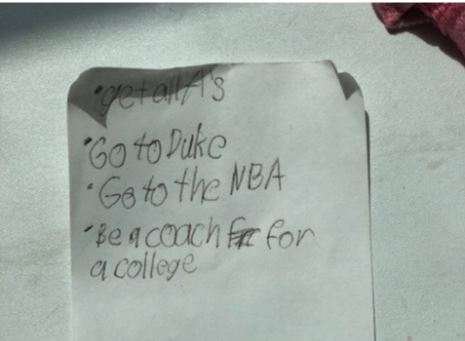 ·get all A's
·Go to Duke
·Go to the NBA
·Be a coach for
a college